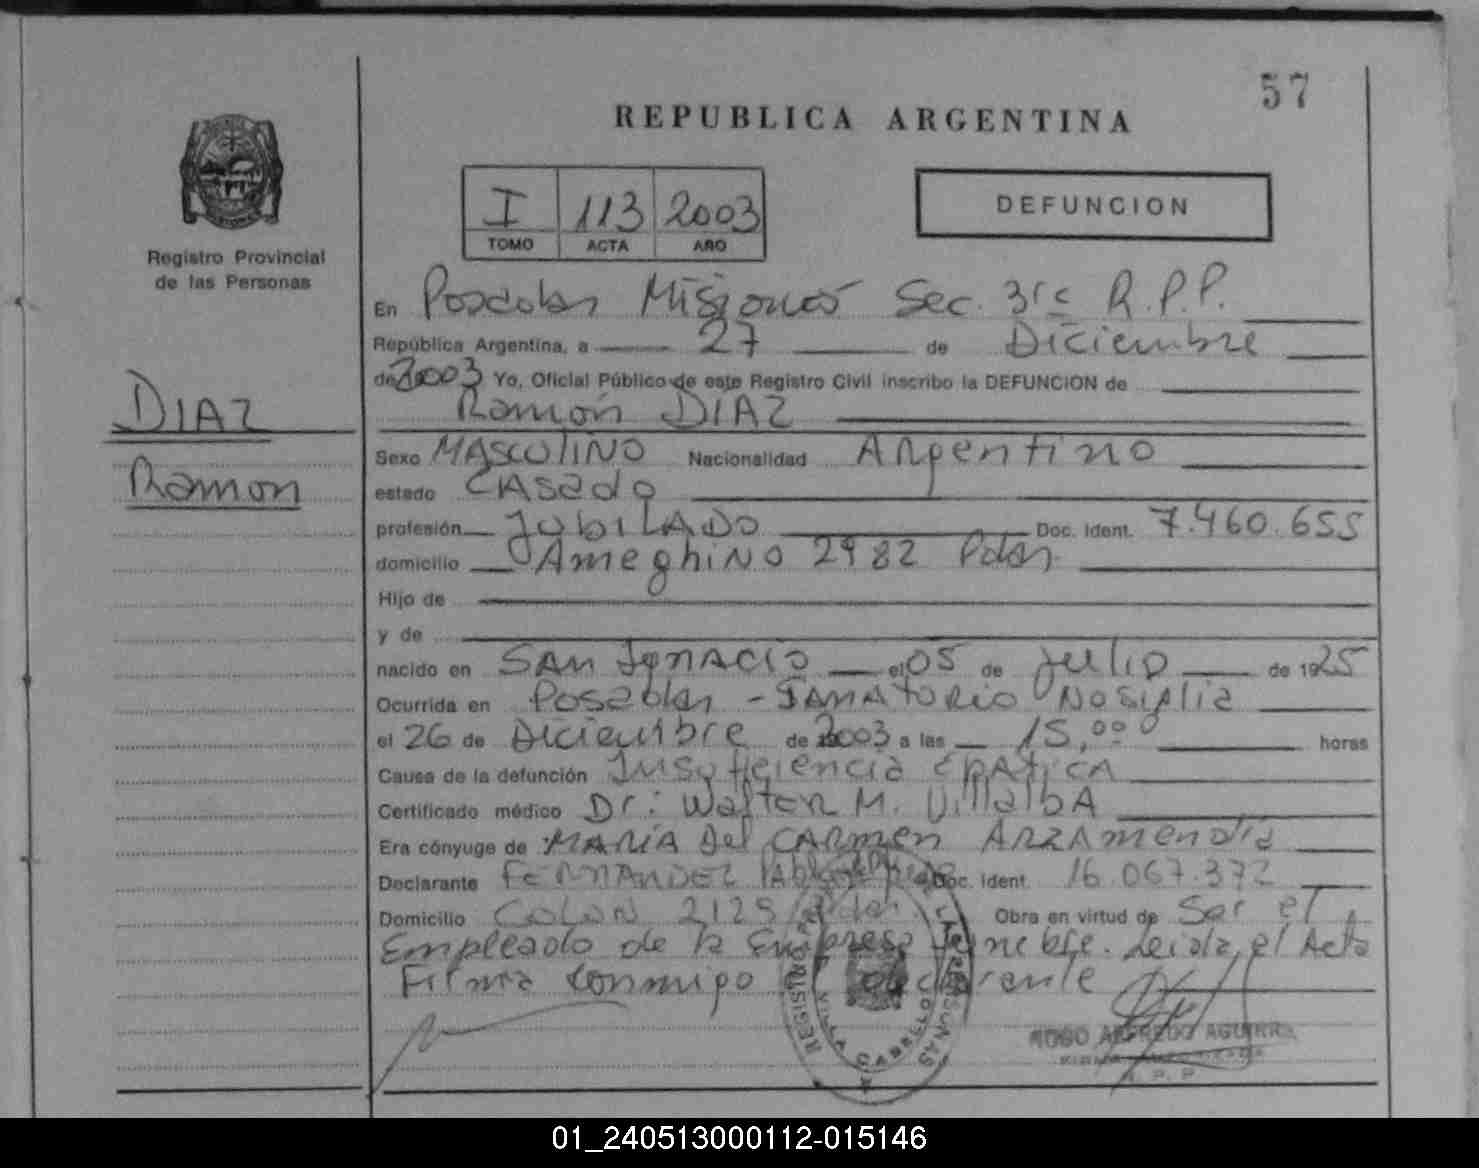 57
REPUBLICA ARGENTINA
I 113 2003
TOMO ACTA AÑO
DEFUNCION
Registro Provincial
de las Personas
DIAZ
Ramon
En Posadas Misiones Sec. 3ra R.P.P.
República Argentina, a 27 de Diciembre
de 2003 Yo, Oficial Público de este Registro Civil inscribo la DEFUNCION de
Ramón DIAZ
Sexo MASCULINO Nacionalidad Argentino
estado CASADO
profesión JUBILADO Doc. Ident. 7.460.655
domicilio Ameghino 2982 Pdas.
Hijo de
y de
nacido en SAN IGNACIO el 05 de Julio de 1925
Ocurrida en Posadas - SANATORIO Nosiglia
el 26 de Diciembre de 2003 a las 15,00 horas
Causa de la defunción Insuficiencia EPATICA
Certificado médico Dr: Walter M. Villalba
Era cónyuge de MARIA Del CARMEN ARZAMENDIA
Declarante FERNANDEZ Pablo Doc. Ident. 16.067.372
Domicilio COLON 2129 Pdas Obra en virtud de Ser el
Empleado de la Empresa Funebre. Leida el Acta
Firma conmigo el declarante
VILLA CABELLO
HUGO ALFREDO AGUIRRE
R. P. P.
01_240513000112-015146